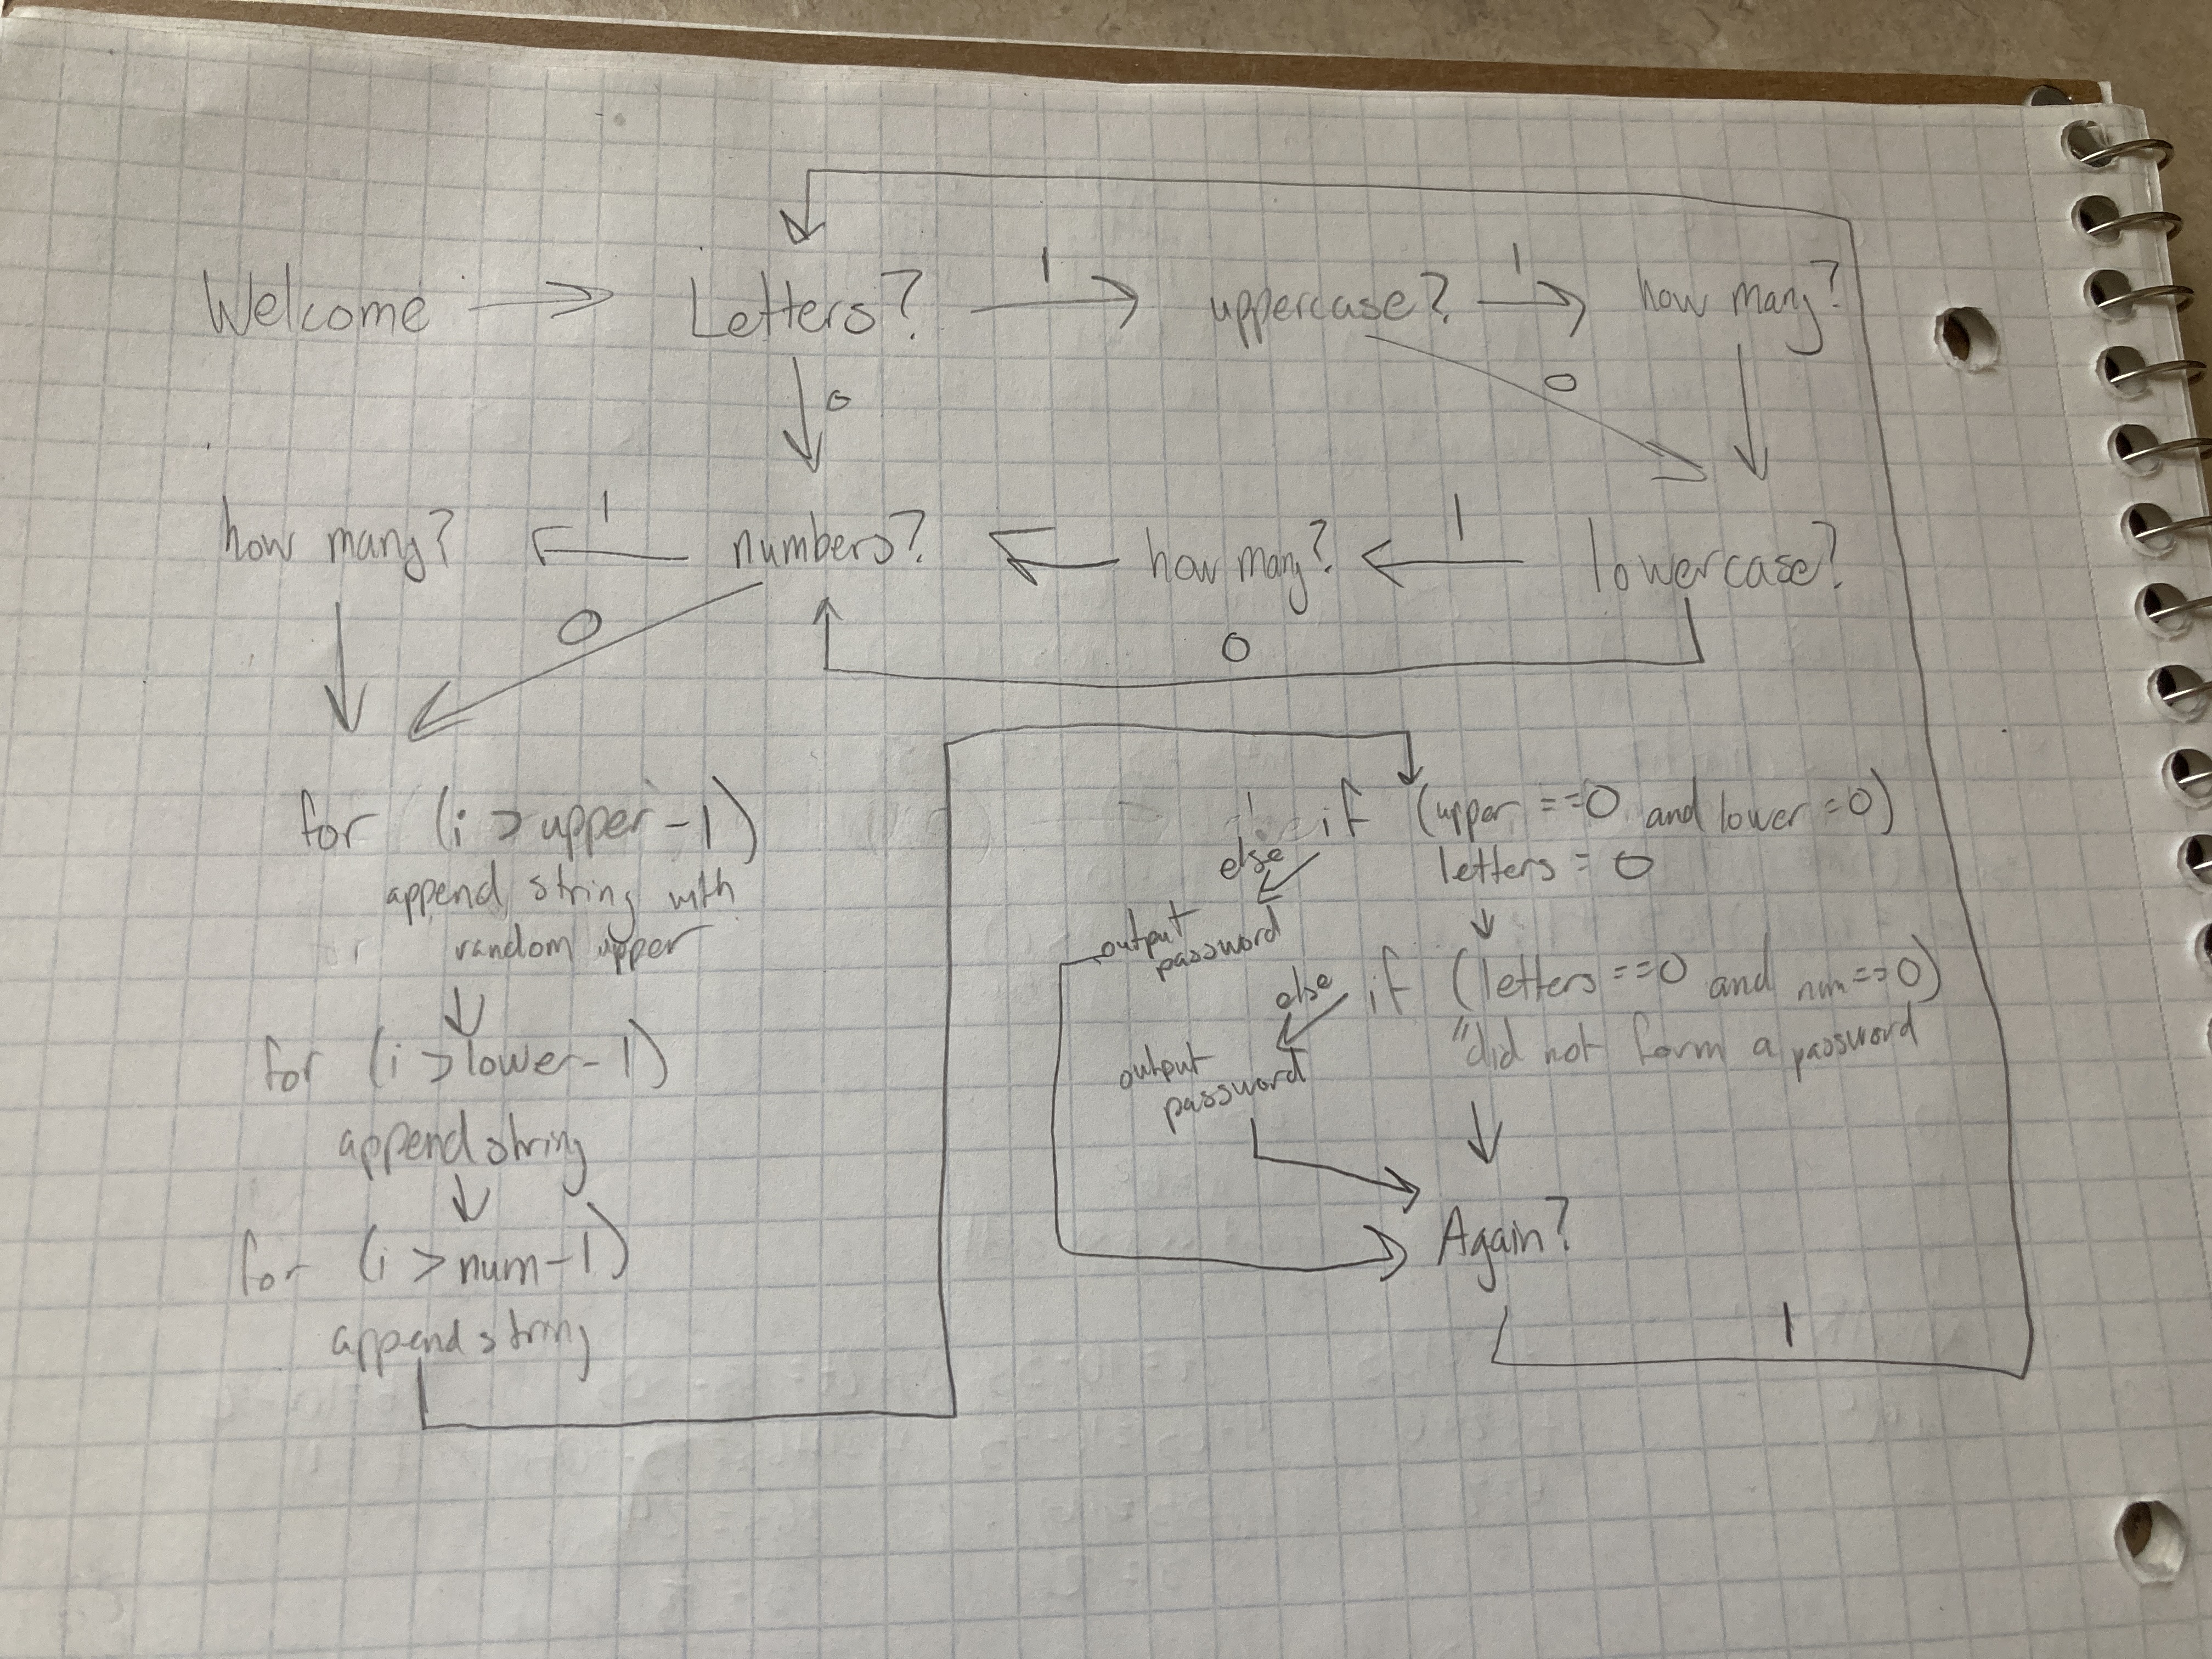 Welcome Letters? 1 uppercase? 1 how many?
0 0
how many? 1 numbers? how many? 1 lowercase?
0 0
for (i > upper -1)
append string with
random upper
for (i > lower -1)
append string
for (i > num -1)
append string
if (upper ==0 and lower =0)
else letters = 0
output
password
if (letters ==0 and num==0)
else "did not form a password
output
password
Again?
1